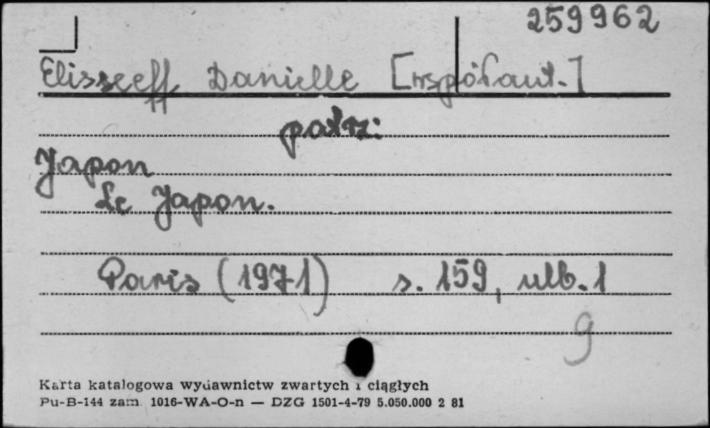 259962
Elisseeff Danielle [współaut.]
patrz:
Japon
Le Japon.
Paris (1971) s. 159, ulb. 1
9
Karta katalogowa wydawnictw zwartych i ciągłych
Pu-B-144 zam. 1016-WA-O-n — DZG 1501-4-79 5.050.000 2 81